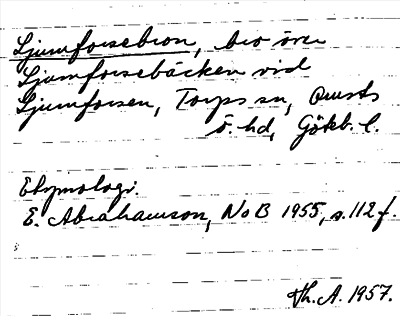 Ljumforsebron, bro över
Ljumforsebäcken vid
Ljumforsen, Torps sn, Orusts
Ö. hd, Götkb. l.
Etymologi.
E. Abrahamson, NoB 1955, s. 112 f.
Th. A. 1957.